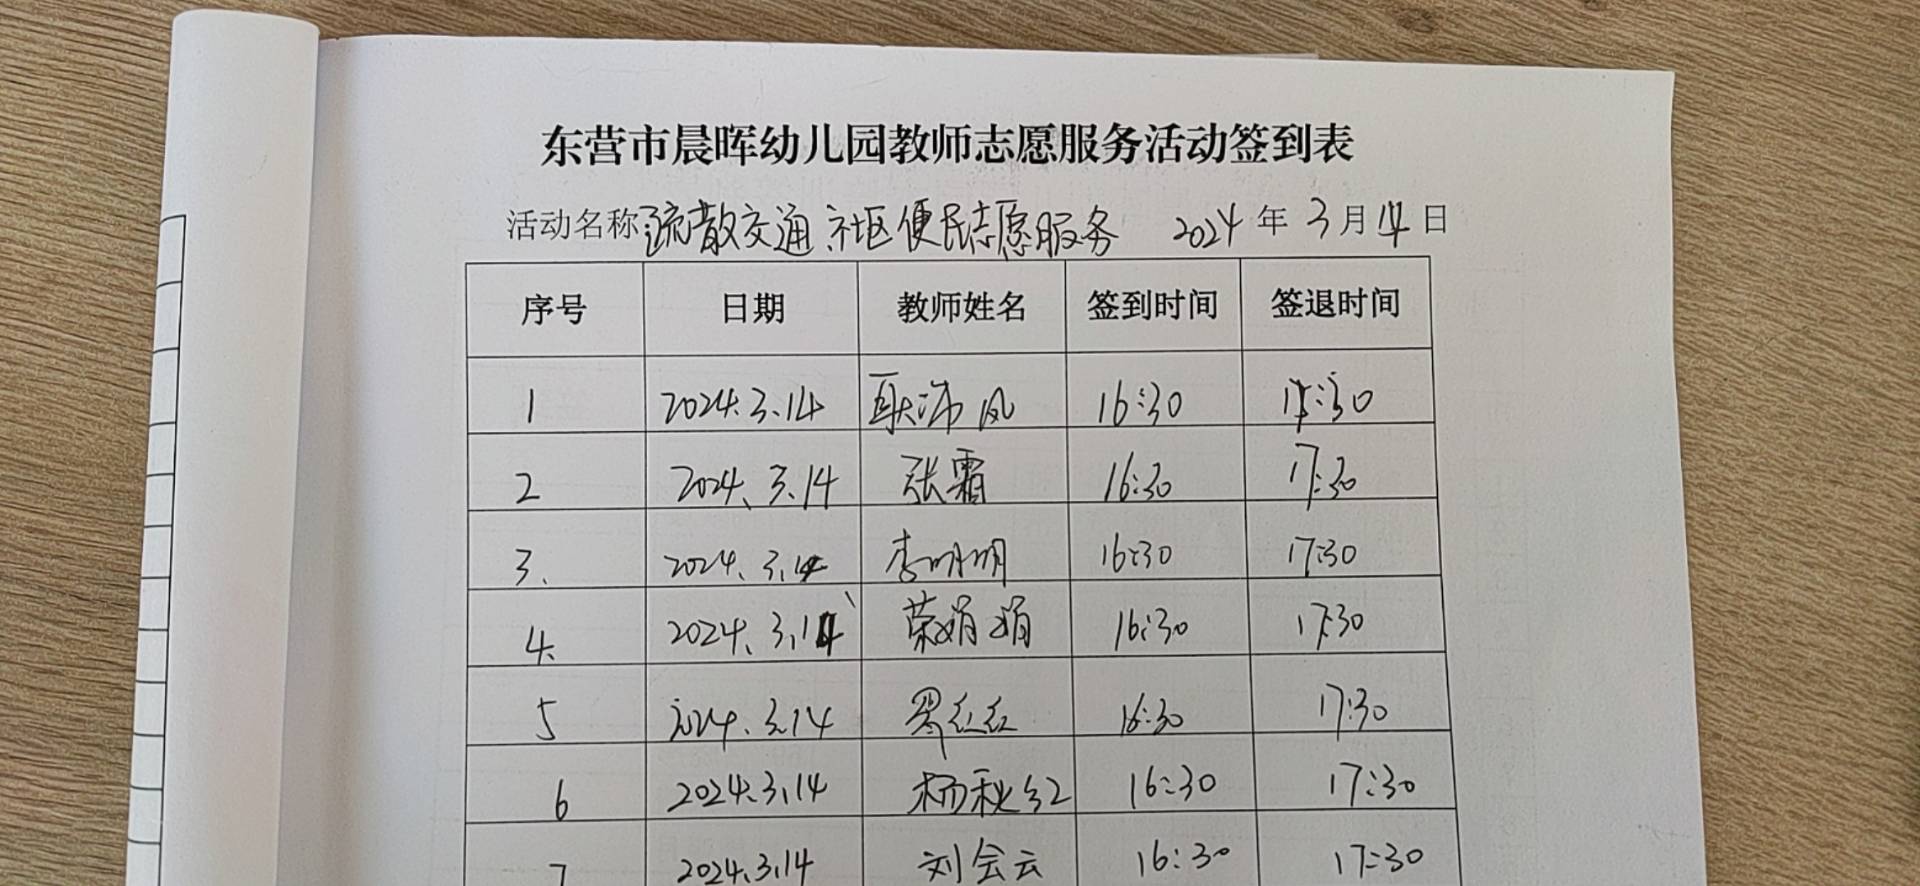 东营市晨晖幼儿园教师志愿服务活动签到表
活动名称:疏散交通 社区便民志愿服务 2024年3月14日
序号 日期 教师姓名 签到时间 签退时间
1 2024.3.14 16:30 17:30
2 2024.3.14 张霜 16:30 17:30
3. 2024.3.14 李明明 16:30 17:30
4. 2024.3.14 荣娟娟 16:30 17:30
5 2024.3.14 16:30 17:30
6 2024.3.14 杨秋红 16:30 17:30
7 2024.3.14 刘会云 16:30 17:30